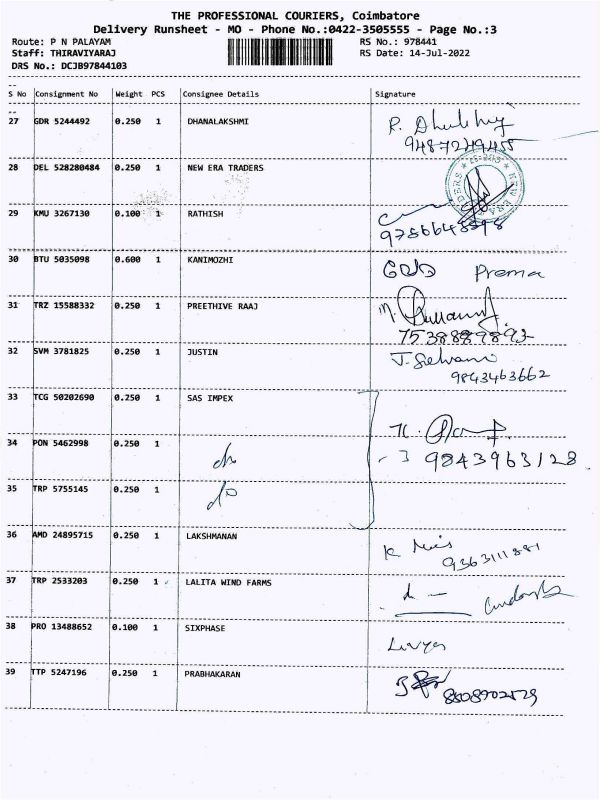 THE PROFESSIONAL COURIERS, Coimbatore
Delivery Runsheet - MO - Phone No.:0422-3505555 - Page No.:3
Route: P N PALAYAM RS No.: 978441
Staff: THIRAVIYARAJ RS Date: 14-Jul-2022
DRS No.: DCJB97844103
S No Consignment No Weight PCS Consignee Details Signature
27 GDR 5244492 0.250 1 DHANALAKSHMI
28 DEL 528280484 0.250 1 NEW ERA TRADERS
29 KMU 3267130 0.100 1 RATHISH
30 BTU 5035098 0.600 1 KANIMOZHI Prema
31 TRZ 15588332 0.250 1 PREETHIVE RAAJ
32 SVM 3781825 0.250 1 JUSTIN J. Selvani
9843463662
33 TCG 50202690 0.250 1 SAS IMPEX
34 PON 5462998 0.250 1 9843963128
35 TRP 5755145 0.250 1 do
36 AMD 24895715 0.250 1 LAKSHMANAN
9363111881
37 TRP 2533203 0.250 1 LALITA WIND FARMS
38 PRO 13488652 0.100 1 SIXPHASE
39 TTP 5247196 0.250 1 PRABHAKARAN